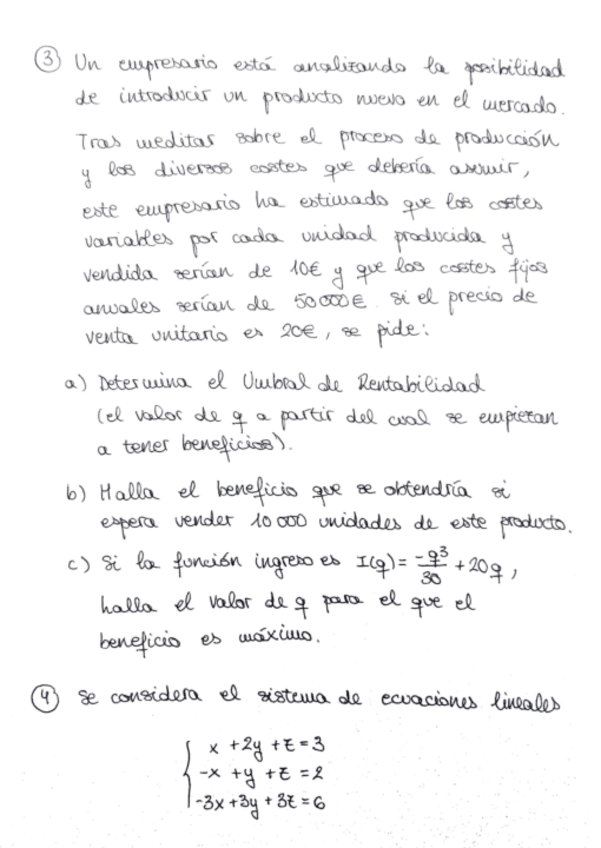 ③ Un empresario está analizando la posibilidad
de introducir un producto nuevo en el mercado.
Tras meditar sobre el proceso de producción
y los diversos costes que debería asumir,
este empresario ha estimado que los costes
variables por cada unidad producida y
vendida serían de 10€ y que los costes fijos
anuales serían de 50000€. Si el precio de
venta unitario es 20€, se pide:
a) Determina el Umbral de Rentabilidad
(el valor de q a partir del cual se empiezan
a tener beneficios).
b) Halla el beneficio que se obtendría si
espera vender 10000 unidades de este producto.
c) Si la función ingreso es I(q) = -q³/30 + 20q,
halla el valor de q para el que el
beneficio es máximo.
④ Se considera el sistema de ecuaciones lineales
x + 2y + z = 3
-x + y + z = 2
-3x + 3y + 3z = 6